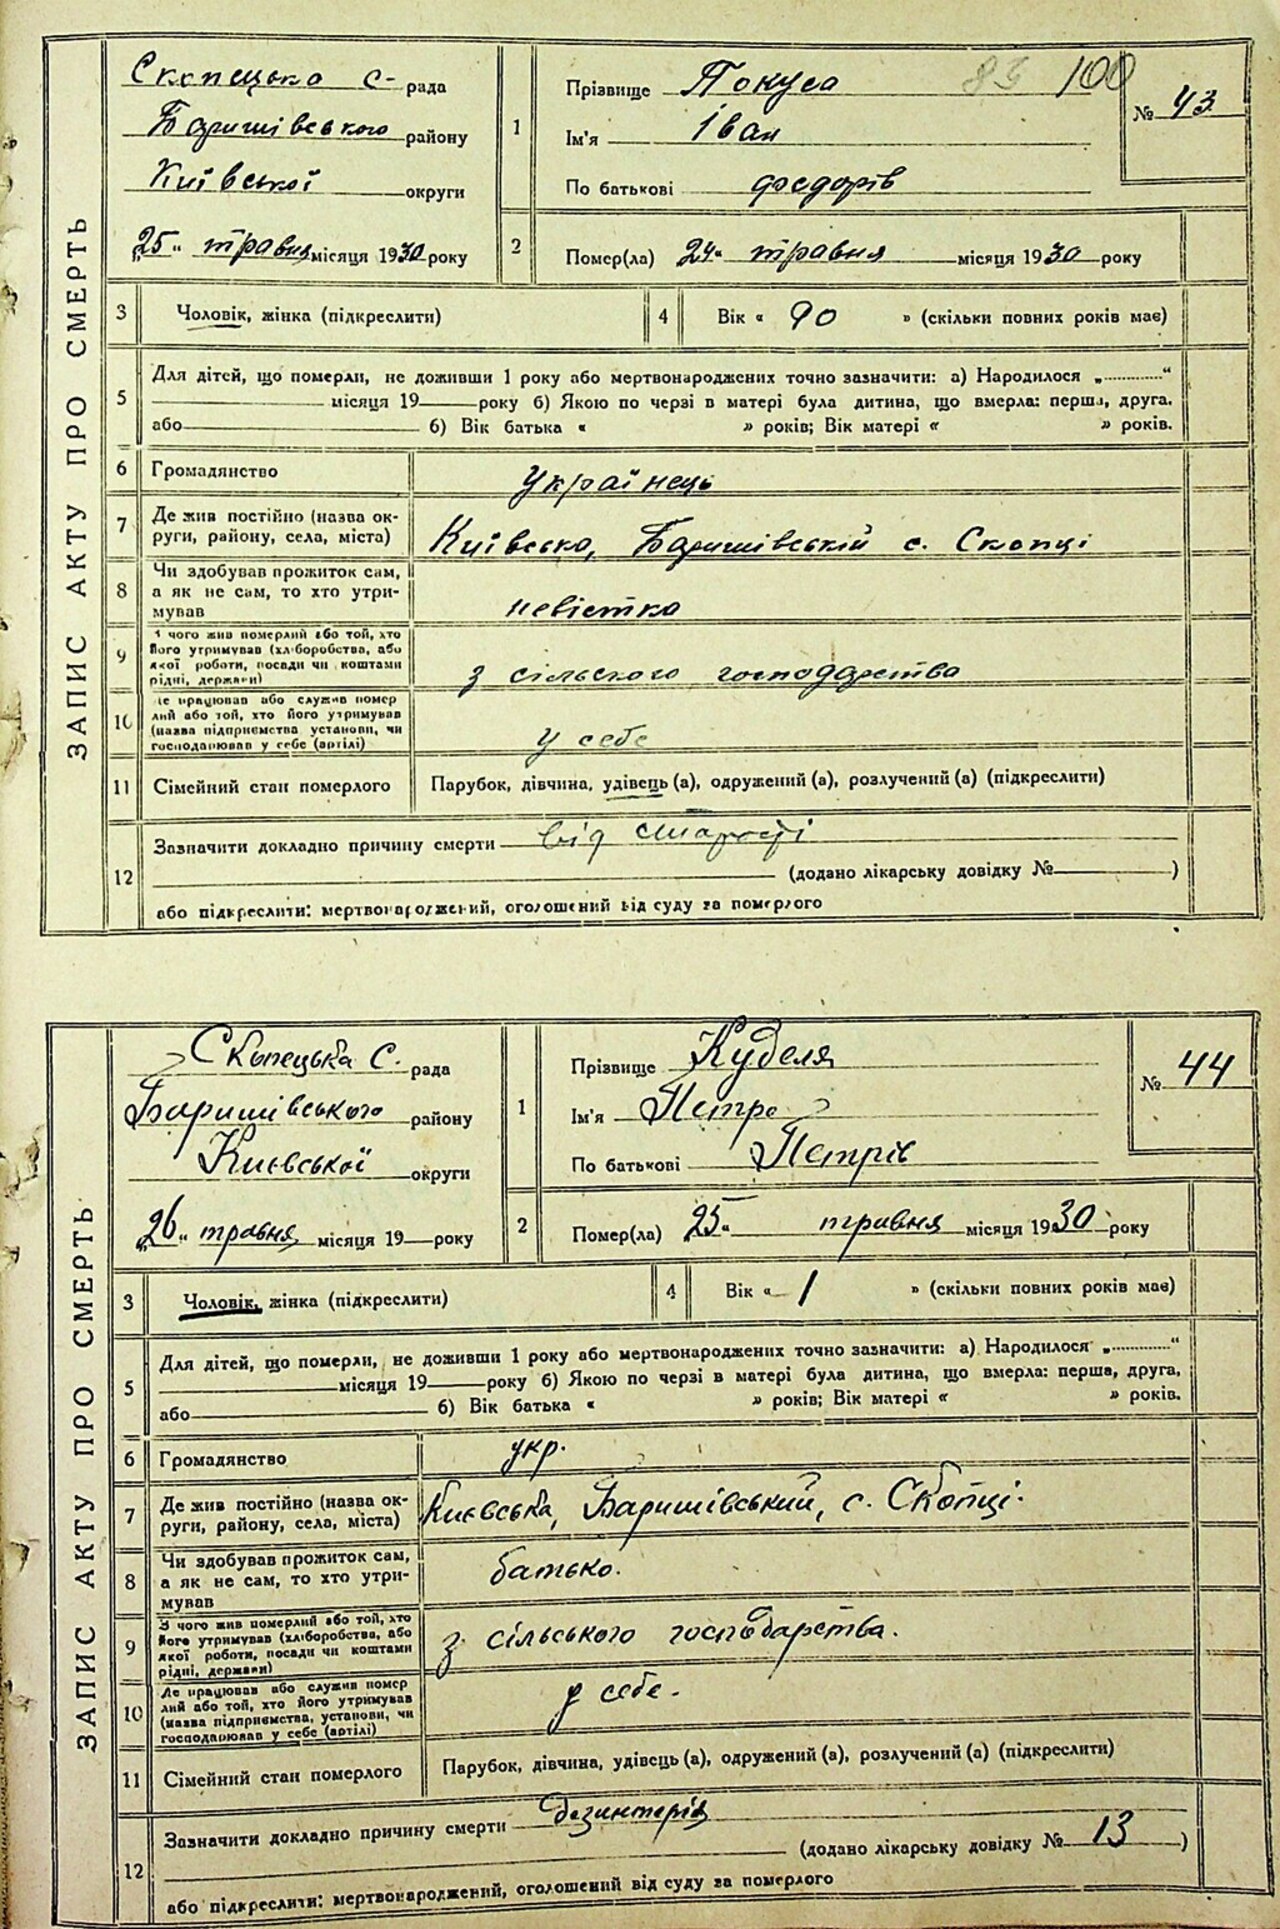 ЗАПИС АКТУ ПРО СМЕРТЬ
Скопецька С- рада
Баришівського району
Київської округи
„25“ травня місяця 1930 року
1
Прізвище Покуса
Ім'я Іван
По батькові Федорів
83 100
№ 43
2 Помер(ла) 24“ травня місяця 1930 року
3 Чоловік, жінка (підкреслити)
4 Вік « 90 » (скільки повних років має)
5 Для дітей, що померли, не доживши 1 року або мертвонароджених точно зазначити: а) Народилося „...........“
місяця 19 року б) Якою по черзі в матері була дитина, що вмерла: перша, друга,
або б) Вік батька « » років; Вік матері « » років.
6 Громадянство Українець
7 Де жив постійно (назва ок-
руги, району, села, міста) Київсько, Баришівській с. Скопці
8 Чи здобував прожиток сам,
а як не сам, то хто утри-
мував невістка
9 З чого жив померлий або той, хто
його утримував (хліборобства, або
якої роботи, посади чи коштами
рідні, держави) з сільского господарства
10 Де працював або служив помер
лий або той, хто його утримував
(назва підприємства установи, чи
господарював у себе (артілі) у себе
11 Сімейний стан померлого Парубок, дівчина, удівець (а), одружений (а), розлучений (а) (підкреслити)
12 Зазначити докладно причину смерти від старості
(додано лікарську довідку № )
або підкреслити: мертвонароджений, оголошений від суду за померлого
ЗАПИС АКТУ ПРО СМЕРТЬ
Скопецька С. рада
Баришівського району
Києвської округи
„26“ травня місяця 19 року
1
Прізвище Куделя
Ім'я Петро
По батькові Петрів
№ 44
2 Помер(ла) 25“ травня місяця 1930 року
3 Чоловік, жінка (підкреслити)
4 Вік « 1 » (скільки повних років має)
5 Для дітей, що померли, не доживши 1 року або мертвонароджених точно зазначити: а) Народилося „...........“
місяця 19 року б) Якою по черзі в матері була дитина, що вмерла: перша, друга,
або б) Вік батька « » років; Вік матері « » років.
6 Громадянство укр.
7 Де жив постійно (назва ок-
руги, району, села, міста) Києвська, Баришівський, с. Скопці.
8 Чи здобував прожиток сам,
а як не сам, то хто утри-
мував батько.
9 З чого жив померлий або той, хто
його утримував (хліборобства, або
якої роботи, посади чи коштами
рідні, держави) з сільського господарства.
10 Де працював або служив помер
лий або той, хто його утримував
(назва підприємства, установи, чи
господарював у себе (артілі) у себе.
11 Сімейний стан померлого Парубок, дівчина, удівець (а), одружений (а), розлучений (а) (підкреслити)
12 Зазначити докладно причину смерти дезинтерія
(додано лікарську довідку № 13 )
або підкреслити: мертвонароджений, оголошений від суду за померлого